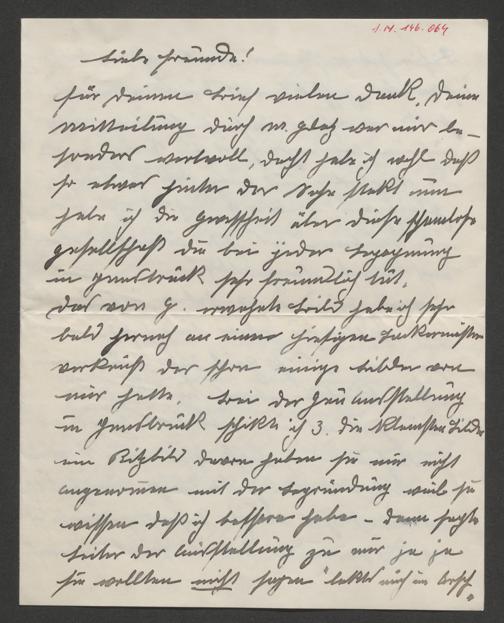 I.N. 146.064
Liebe Freunde!
Für deinen Brief vielen Dank, deine
Mitteilung durch M. gbg war mir be-
sonders wertvoll, dacht habe ich wohl daß
so etwas hinter der Sache stekt nun
habe ich die gewissheit über diese schamlose
gesellschaft die bei jeder begegnung
in Innsbruck sehr freundlich tut.
Das von g. erwähnte Bild habe ich sehr
bald hernach an einen hiesigen
verkauft der schon einige bilder von
mir hatte. Bei der Ausstellung
in Innsbruck schikte ich 3. die kleinsten Bilder
ein Kitzbild davon haben sie mir nicht
angenomen mit der begründung weil sie
wissen daß ich bessere habe – dann sagte
Leiter der Ausstellung zu mir ja ja
sie wollten nicht sagen "lekts mich im Arsch"